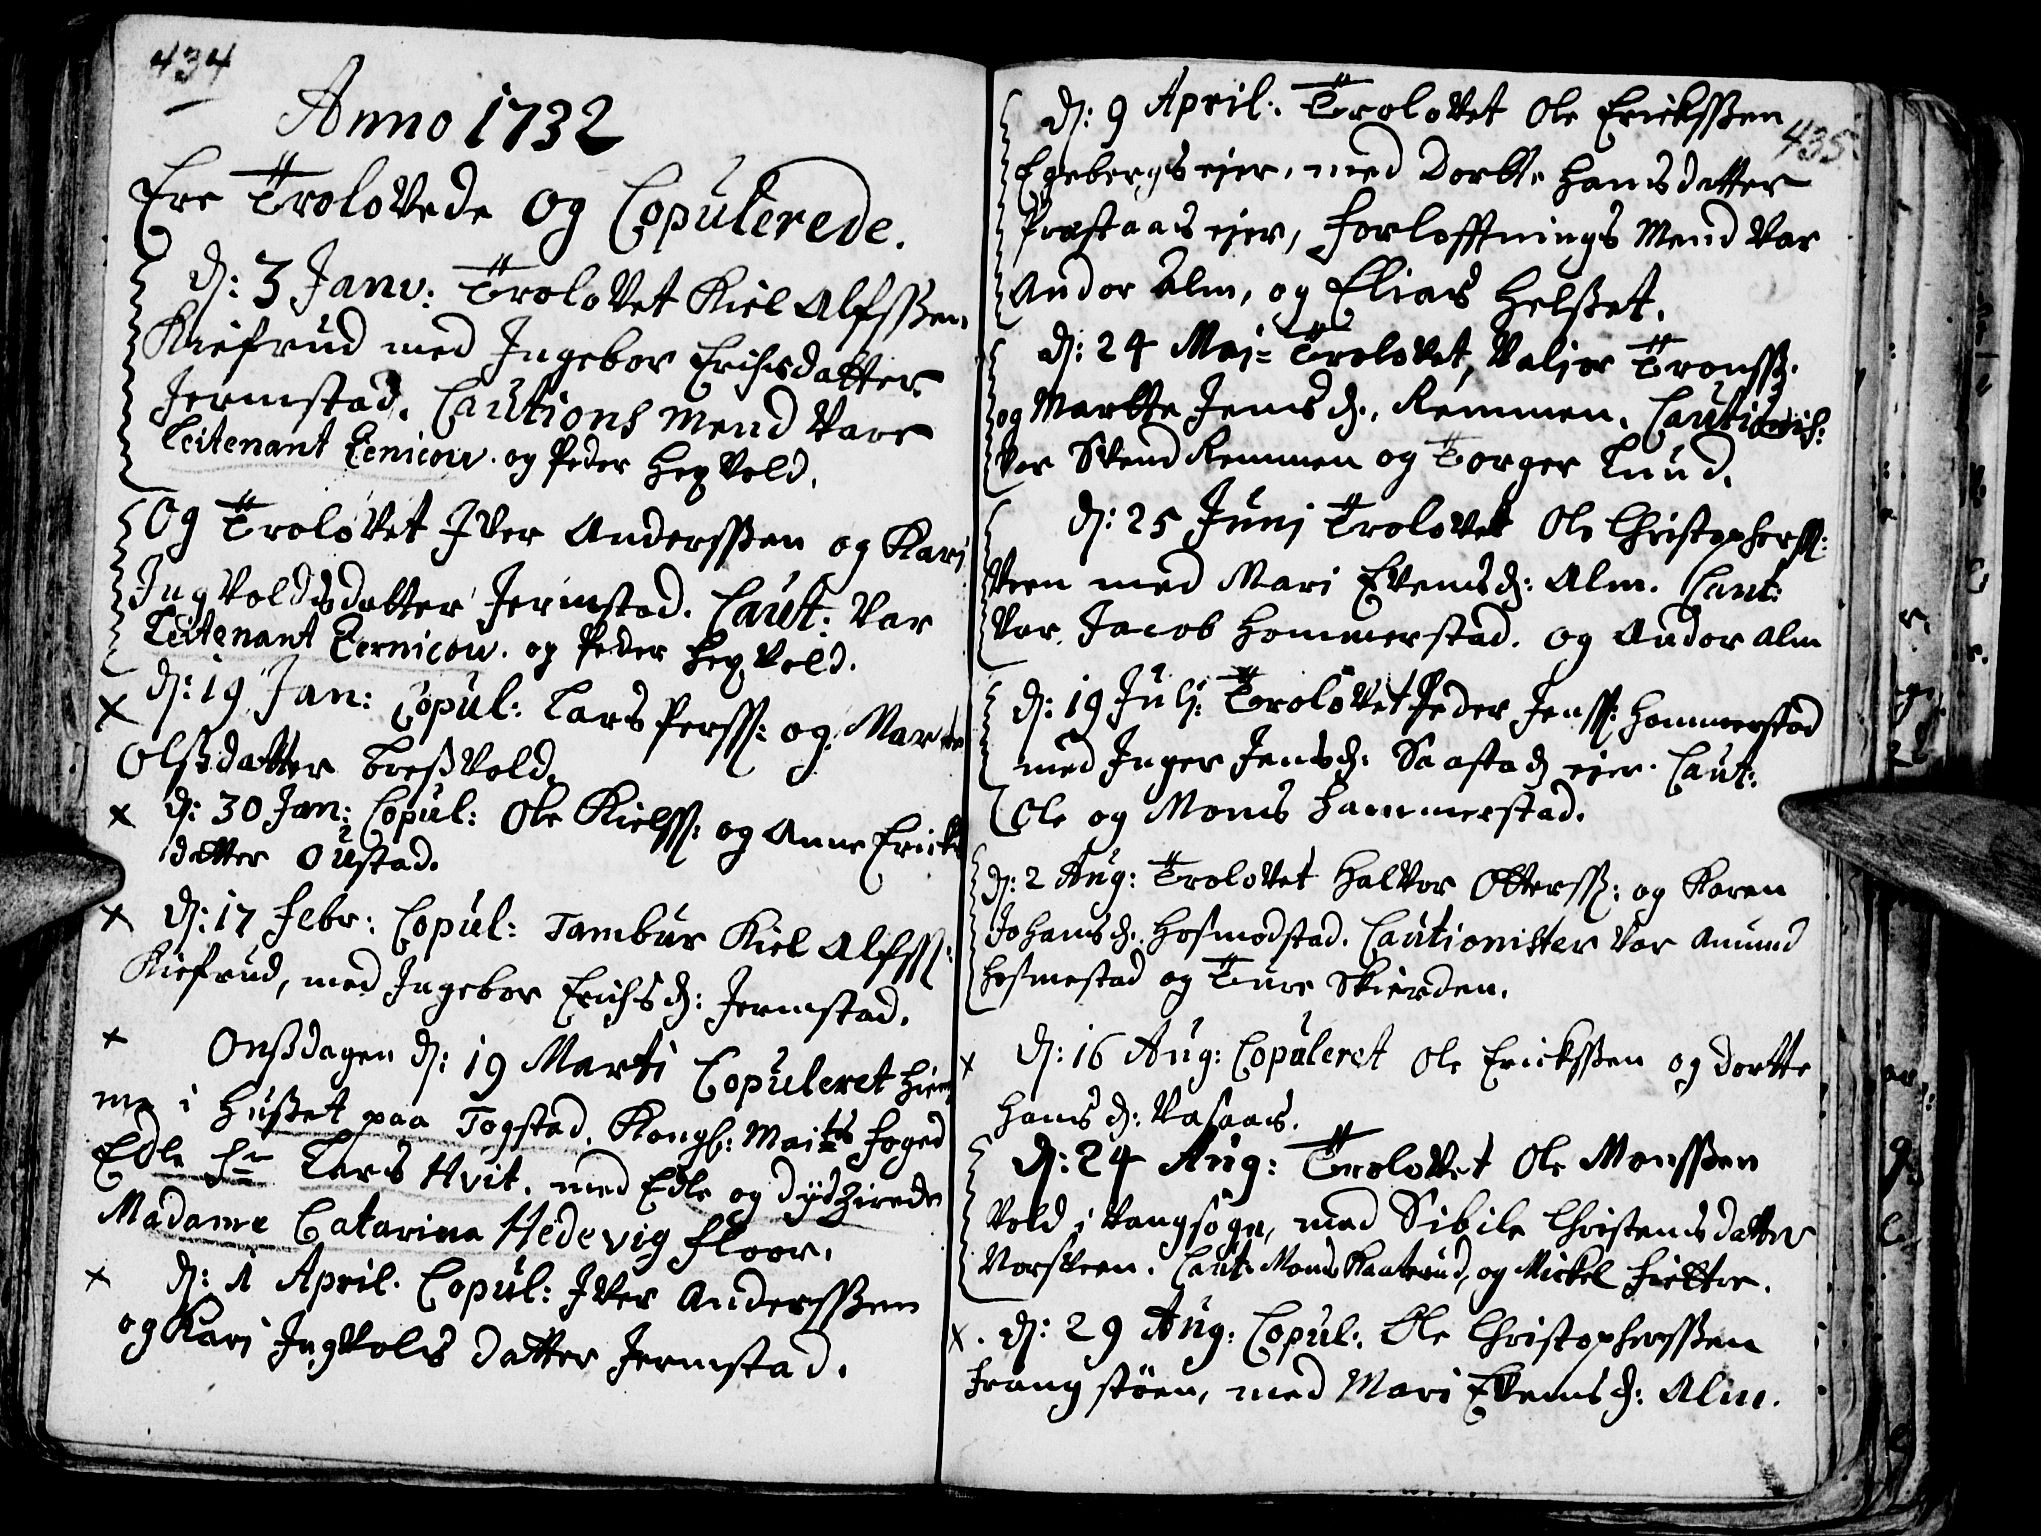 434
Anno 1732
Ere Trolovede og Copulerede.
d: 3 Janv: Trolovet Kiel Alfsßen
Kiefrud med Ingebor Erichsdatter
Jermstad. Cautions Mend vare
Leitenant Lenicow. og Peder Hexvold.
Og Trolovet Iver Andersßen og Kari
Ingvoldsdatter Jermstad. Caut: var
Leitenant Lernicow. og Peder Hexvold.
d: 19 Jan: Copul: Lars Perss: og Marte
Olsdatter Leßvold.
d: 30 Jan: Copul: Ole Kielss: og Anne Ericks
datter Oustad.
d: 17 Febr: Copul: Tambur Kiel Alfss:
Kiefrud, med Ingebor Erichsd: Jermstad.
Onßdagen d: 19 Marti Copuleret hiem
me i Hußet paa Togstad. Kongl: Maits Foged
Edle Hr Lars Hvit. med Edle og dydzirede
Madame Catarina Hedevig Floor.
d: 1 April. Copul: Iver Andersßen
og Kari Ingvolds datter Jermstad.
435
d: 9 April. Trolovet Ole Ericksßen
Egebergs ejer, med Dorte Hansdatter
Præstaas ejer, Forlofftnings Mend var
Andor Alm, og Elias Helßet.
d: 24 Maj Trolovet, Valjer Tronss.
og Marte Jensd. Remmen. Cautionist:
var Svend Remmen og Torger Lund.
d: 25 Junj Trolovet Ole Christopherss:
Veen med Mari Evensd: Alm. Caut:
var Jacob Hommerstad. og Andor Alm
d: 19 Julj: Trolovet Peder Jenss: Hommerstad
med Inger Jensd: Saastad ejer. Caut:
Ole og Mons Hammerstad.
d: 2 Aug: Trolovet Halvor Otterss: og Karen
Johansd. Hosmodstad. Cautionister var Amund
Hosmestad og Ture Skierden.
d: 16 Aug: Copuleret Ole Ericksßen og Dortte
Hansd: Vasaas.
d: 24 Aug: Trolovet Ole Monsßen
Vold i Vangsogn, med Sibile Christensdatter
Norsveen. Caut: Mons Kaatrud, og Mickel Fietter.
d: 29 Aug: Copul: Ole Christophersßen
Frang støen, med Mari Evensd: Alm.